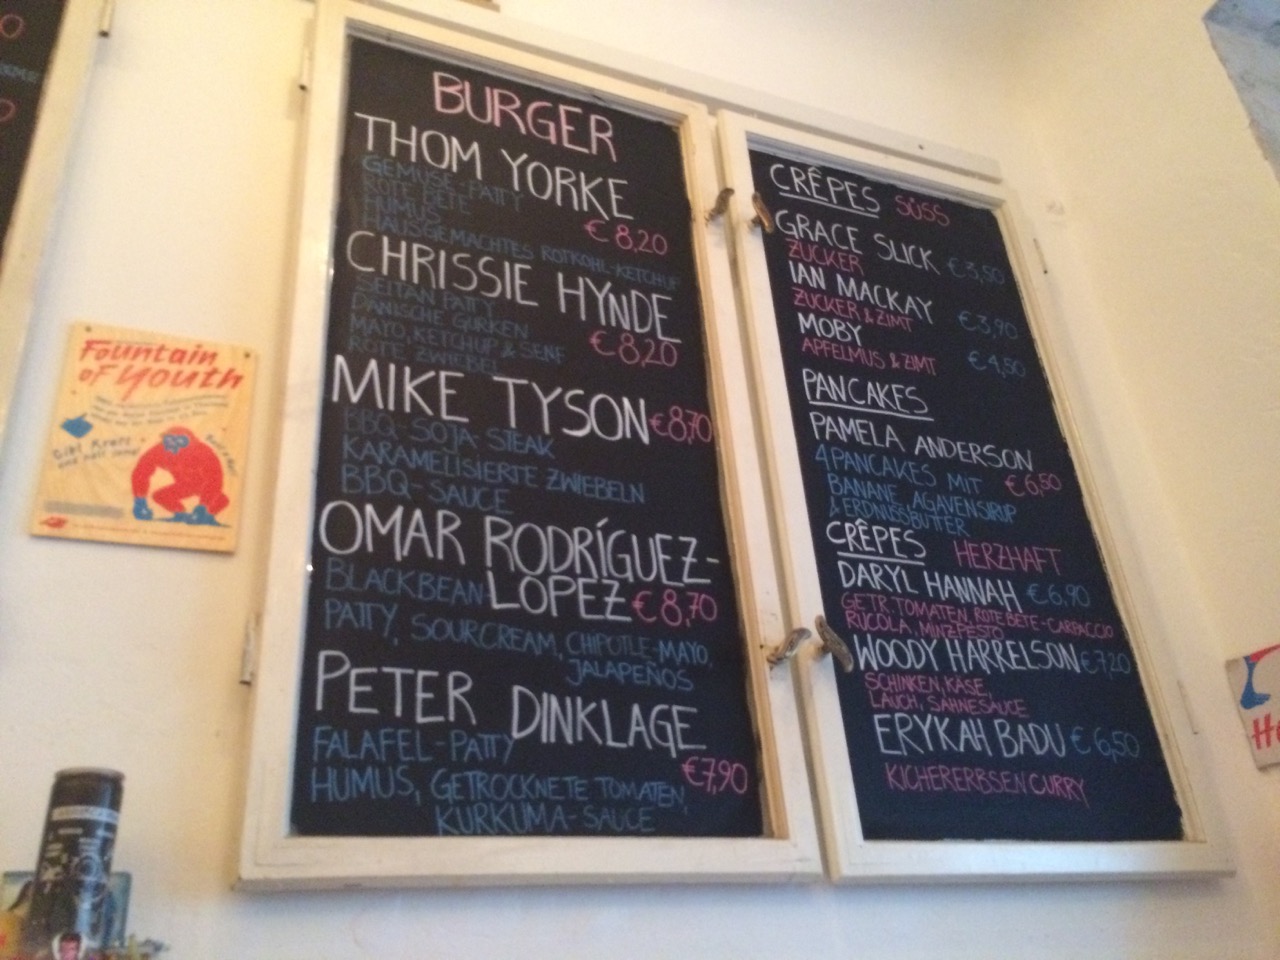 BURGER
THOM YORKE
GEMÜSE-PATTY
ROTE BETE
HUMUS
€ 8,20
HAUSGEMACHTES ROTKOHL-KETCHUP
CHRISSIE HYNDE
SEITAN PATTY
DÄNISCHE GURKEN
MAYO, KETCHUP & SENF
€ 8,20
ROTE ZWIEBEL
MIKE TYSON €8,70
BBQ-SOJA-STEAK
KARAMELISIERTE ZWIEBELN
BBQ-SAUCE
OMAR RODRÍGUEZ-
LOPEZ € 8,70
BLACKBEAN
PATTY, SOURCREAM, CHIPOTLE-MAYO,
JALAPEÑOS
PETER DINKLAGE
FALAFEL-PATTY
€7,90
HUMUS, GETROCKNETE TOMATEN,
KURKUMA-SAUCE
CRÊPES SÜSS
GRACE SLICK €3,50
ZUCKER
IAN MACKAY €3,90
ZUCKER & ZIMT
MOBY €4,50
APFELMUS & ZIMT
PANCAKES
PAMELA ANDERSON
€6,50
4 PANCAKES MIT
BANANE, AGAVENSIRUP
& ERDNUSSBUTTER
CRÊPES HERZHAFT
DARYL HANNAH €6,90
GETR. TOMATEN, ROTE BETE-CARPACCIO
RUCOLA, MINZPESTO
WOODY HARRELSON €7,20
SCHINKEN, KÄSE,
LAUCH, SAHNESAUCE
ERYKAH BADU € 6,50
KICHERERBSEN CURRY
Fountain
of Youth
Gibt Kraft
und hält jung!